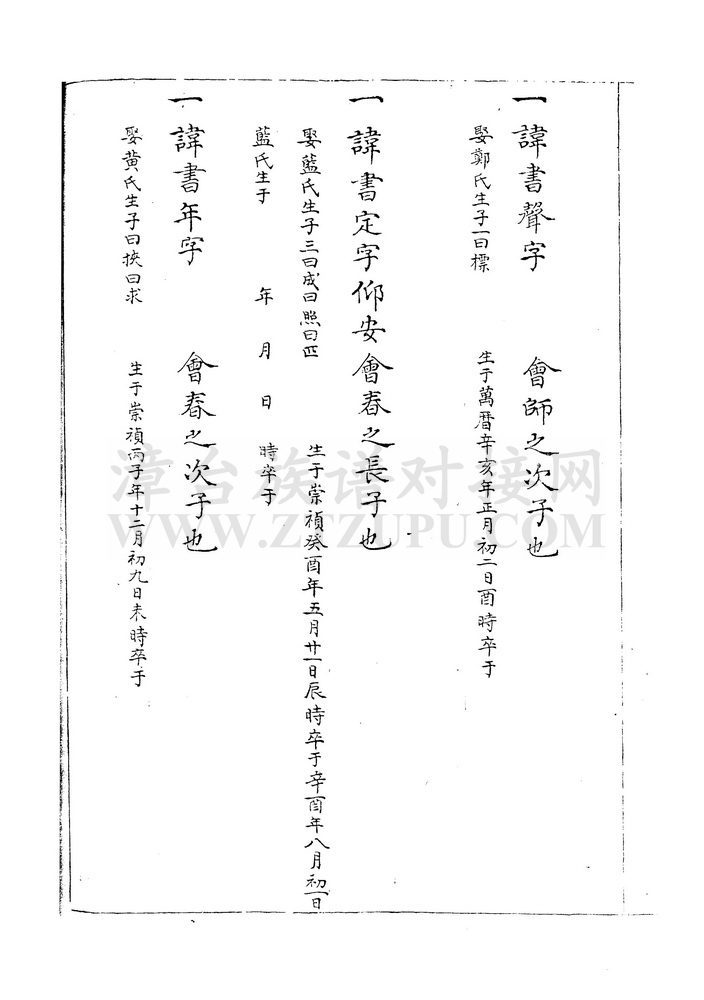 一諱書聲字 會師之次子也
娶鄭氏生子一曰標 生于萬曆辛亥年正月初二日酉時卒于
一諱書定字仰安會春之長子也
娶藍氏生子三曰成曰照曰匹 生于崇禎癸酉年五月廿一日辰時卒于辛酉年八月初一日
藍氏生于 年 月 日 時卒于
一諱書年字 會春之次子也
娶黄氏生子曰挾曰求 生于崇禎丙子年十二月初九日未時卒于
漳台族谱对接网
WWW.ZTZUPU.COM